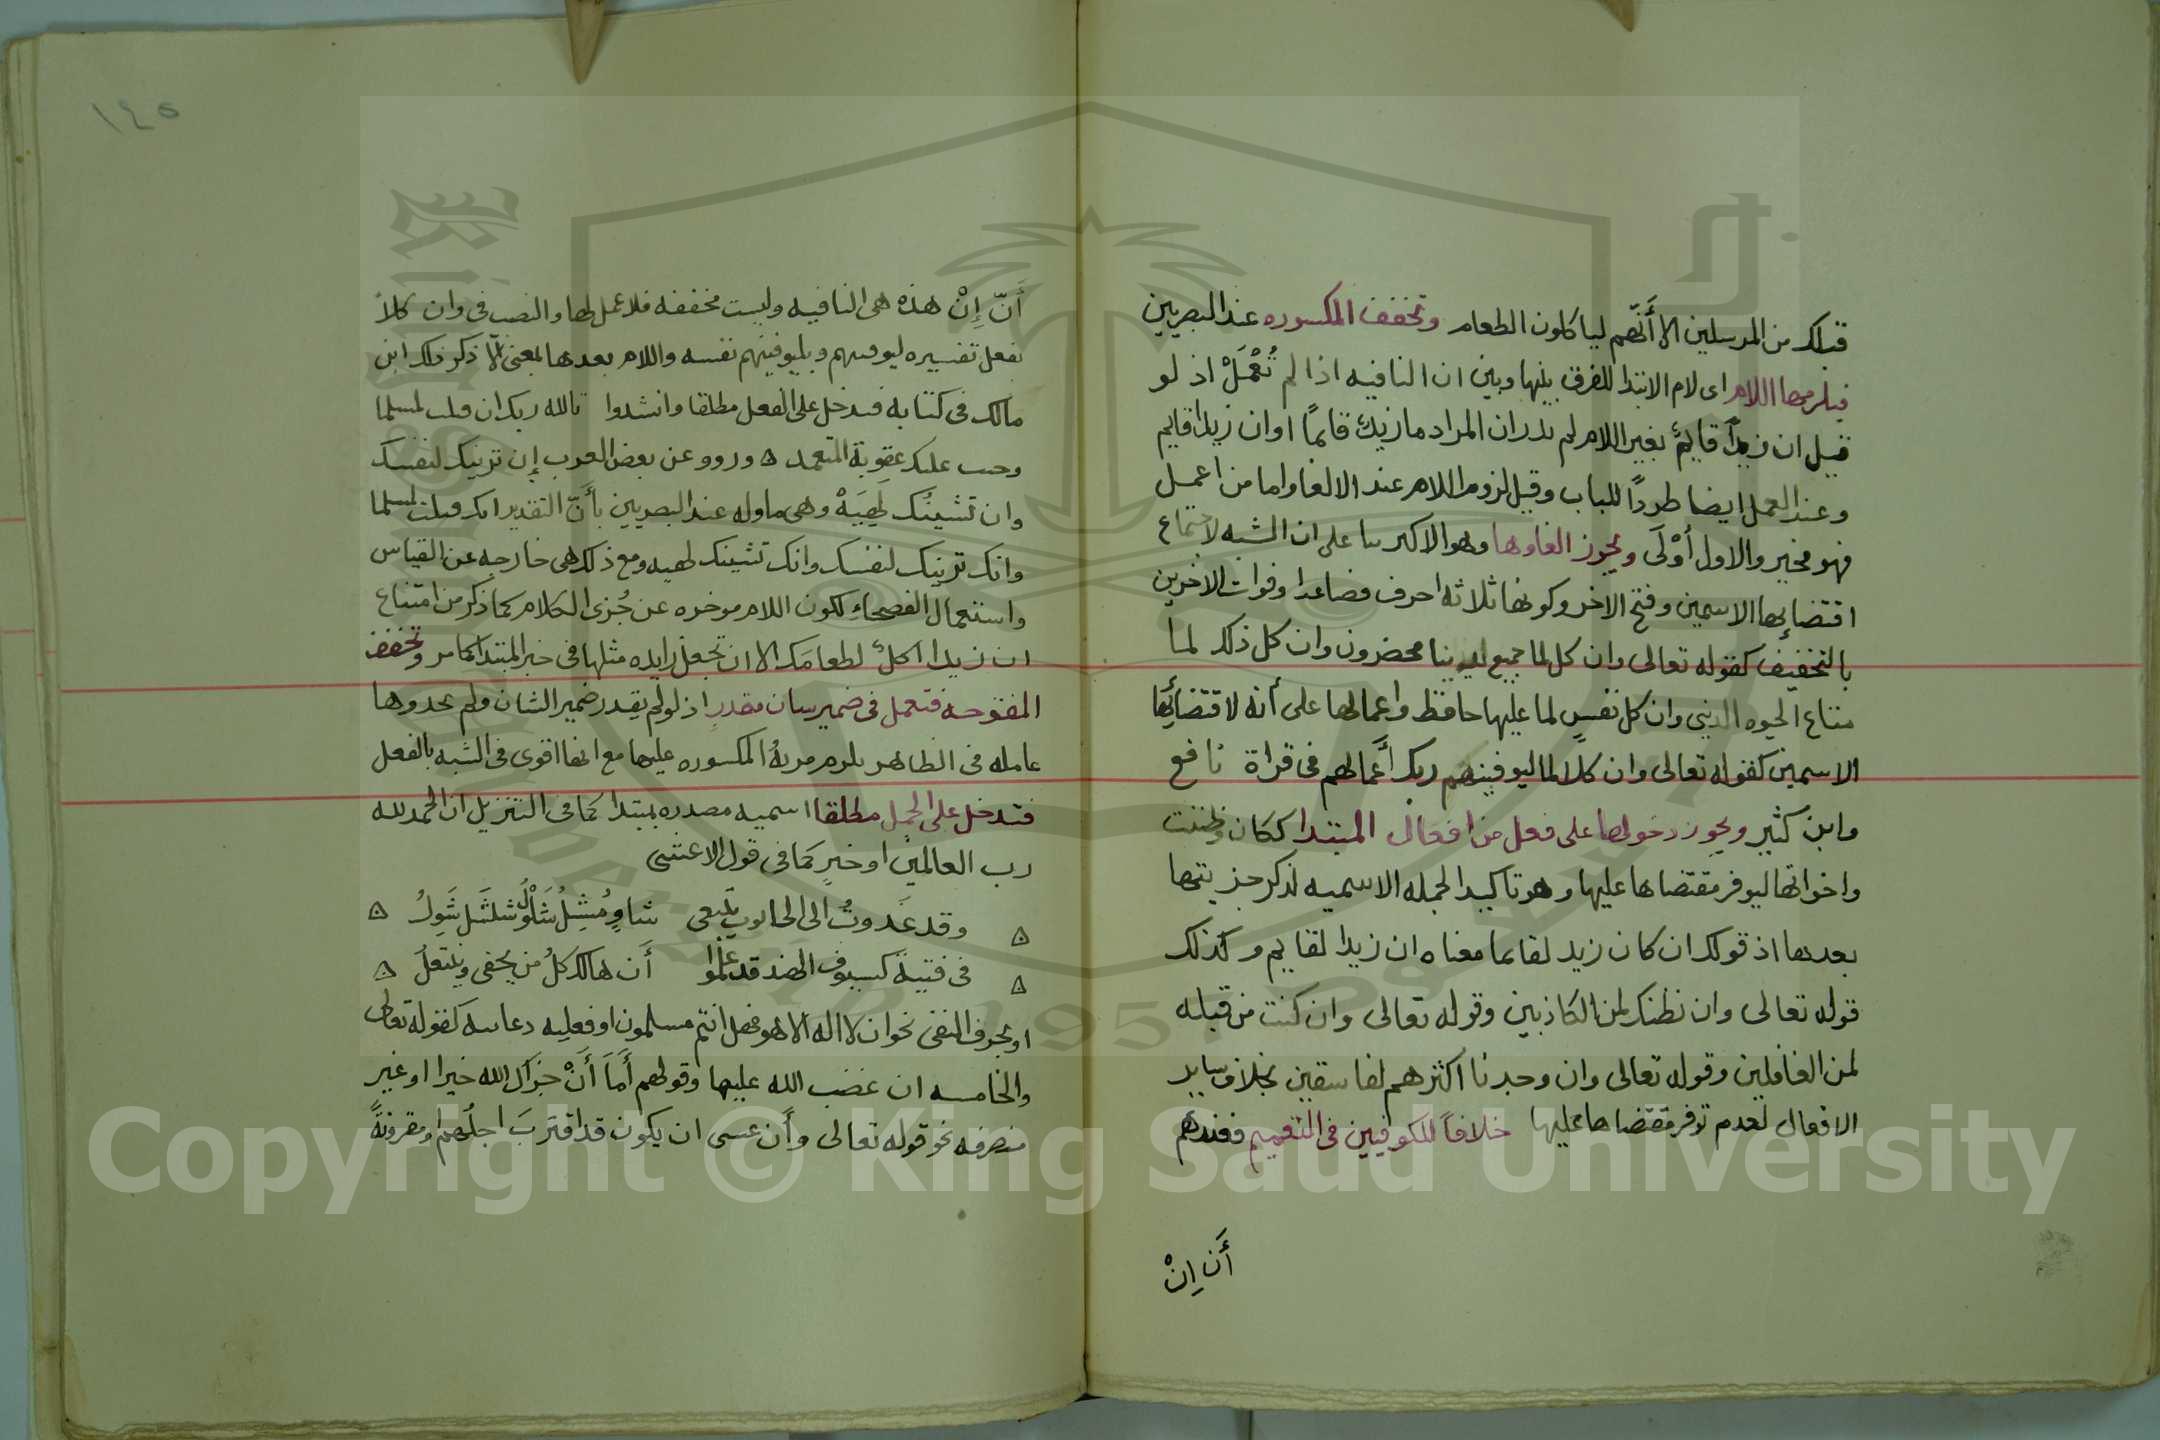 قبلك من المرسلين الا أَنّهم لياكلون الطعام وتخفف المكسوره عند البصريين
فيلزمها اللام اى لام الابتدا للفرق بينها وبين ان النافيه اذا لم تُعْمَلْ اذ لو
قيل ان زيدٌ قايمٌ بغير اللام لم يدر ان المراد ما زيدٌ قايمًا او ان زيدا قايم
وعند العمل ايضا طردًا للباب وقيل لزوم اللام عند الالغا واما من اعمل
فهو مخير والاول أوْلَى ويجوز الغاوها وهو الاكثر بنا على ان الشبه لاجتماع
اقتضايها الاسمين وفتح الاخر وكونها ثلاثه احرف فصاعدا وفوات الاخرين
بالتخفيف كقوله تعالى وان كل لما جميع لدينا محضرون وان كل ذلك لما
متاع الحيوه الدنيى وان كل نفسٍ لما عليها حافظ واعمالها على أنه لاقتضائِها
الاسمين كقوله تعالى وان كلًا لما ليوفينهم ربك أَعمالهم فى قراة نافع
وابن كثير ويجوز دخولها على فعل من افعال المبتدا ككان وظننت
واخواتها ليوفر مقتضاها عليها وهو تاكيد الجمله الاسميه لذكر جزيتها
بعدها اذ قولك ان كان زيد لقايما معناه ان زيدا لقايم وكذلك
قوله تعالى وان نظنك لمن الكاذبين وقوله تعالى وان كنت من قبله
لمن الغافلين وقوله تعالى وان وجدنا اكثرهم لفاسقين بخلاف ساير
الافعال لعدم توفر مقتضاها عليها خلافًا للكوفيين فى التعميم فعندهم
أَن اِنْ
١٤٥
أَنّ إِنْ هذه هى النافيه وليست مخففه فلا عمل لها والنصب فى وان كلاً
بفعل تفسيره ليوفينهم وبليوفينهم نفسه واللام بعدها بمعنى الّا ذكر ذلك ابن
مالك فى كتابه فتدخل على الفعل مطلقا وانشدوا تالله ربك ان قتلت لمسلما
وجبت عليك عقوبة المتعمد ورووا عن بعض العرب إن تزينك لنفسك
وان تشينُك لَهِيَهْ وهى ماوله عند البصريين بأَنّ التقدير انك قتلت لمسلما
وانك تزينك لنفسك وانك تشينك لهيه ومع ذلك هى خارجه عن القياس
واستعمال الفصحاءِ لكون اللام موخره عن جُزى الكلام كما ذكر من امتناع
ان زيدا اكلٌ لطعامَك الا ان تجعل زايده مثلها فى خبر المبتدا كما مر وتخفف
المفتوحه فتعمل فى ضمير شان مقدرٍ اذ لو لم يقدر ضمير الشان ولم يجدوها
عامله فى الظاهر يلزم مزيةُ المكسوره عليها مع انها اقوى فى الشبه بالفعل
فتدخل على الجمل مطلقا اسميه مصدره بمبتدا كما فى التنزيل ان الحمد لله
رب العالمين او خبرٍ كما فى قول الاعشى
وقد غَدوتُ الى الحانوت يتبعنى شاوٍ مُشِلُ شَلْولُ شلشَل شَوِلُ
فى فتية كسيوف الهند قد علموا أَن هالك كلُ من يحفى وينتعلُ
او بحرف النفى نحو ان لا اله الا هو فهل انتم مسلمون او فعليه دعاييه كقوله تعالى
والخامسه ان غضب الله عليها وقولهم أَمَا أَنْ جزاك الله خيرا او غير
متصرفه نحو قوله تعالى وأَن عسى ان يكون قد اقترَبَ اجلُهم او مقرونةً
Copyright © King Saud University